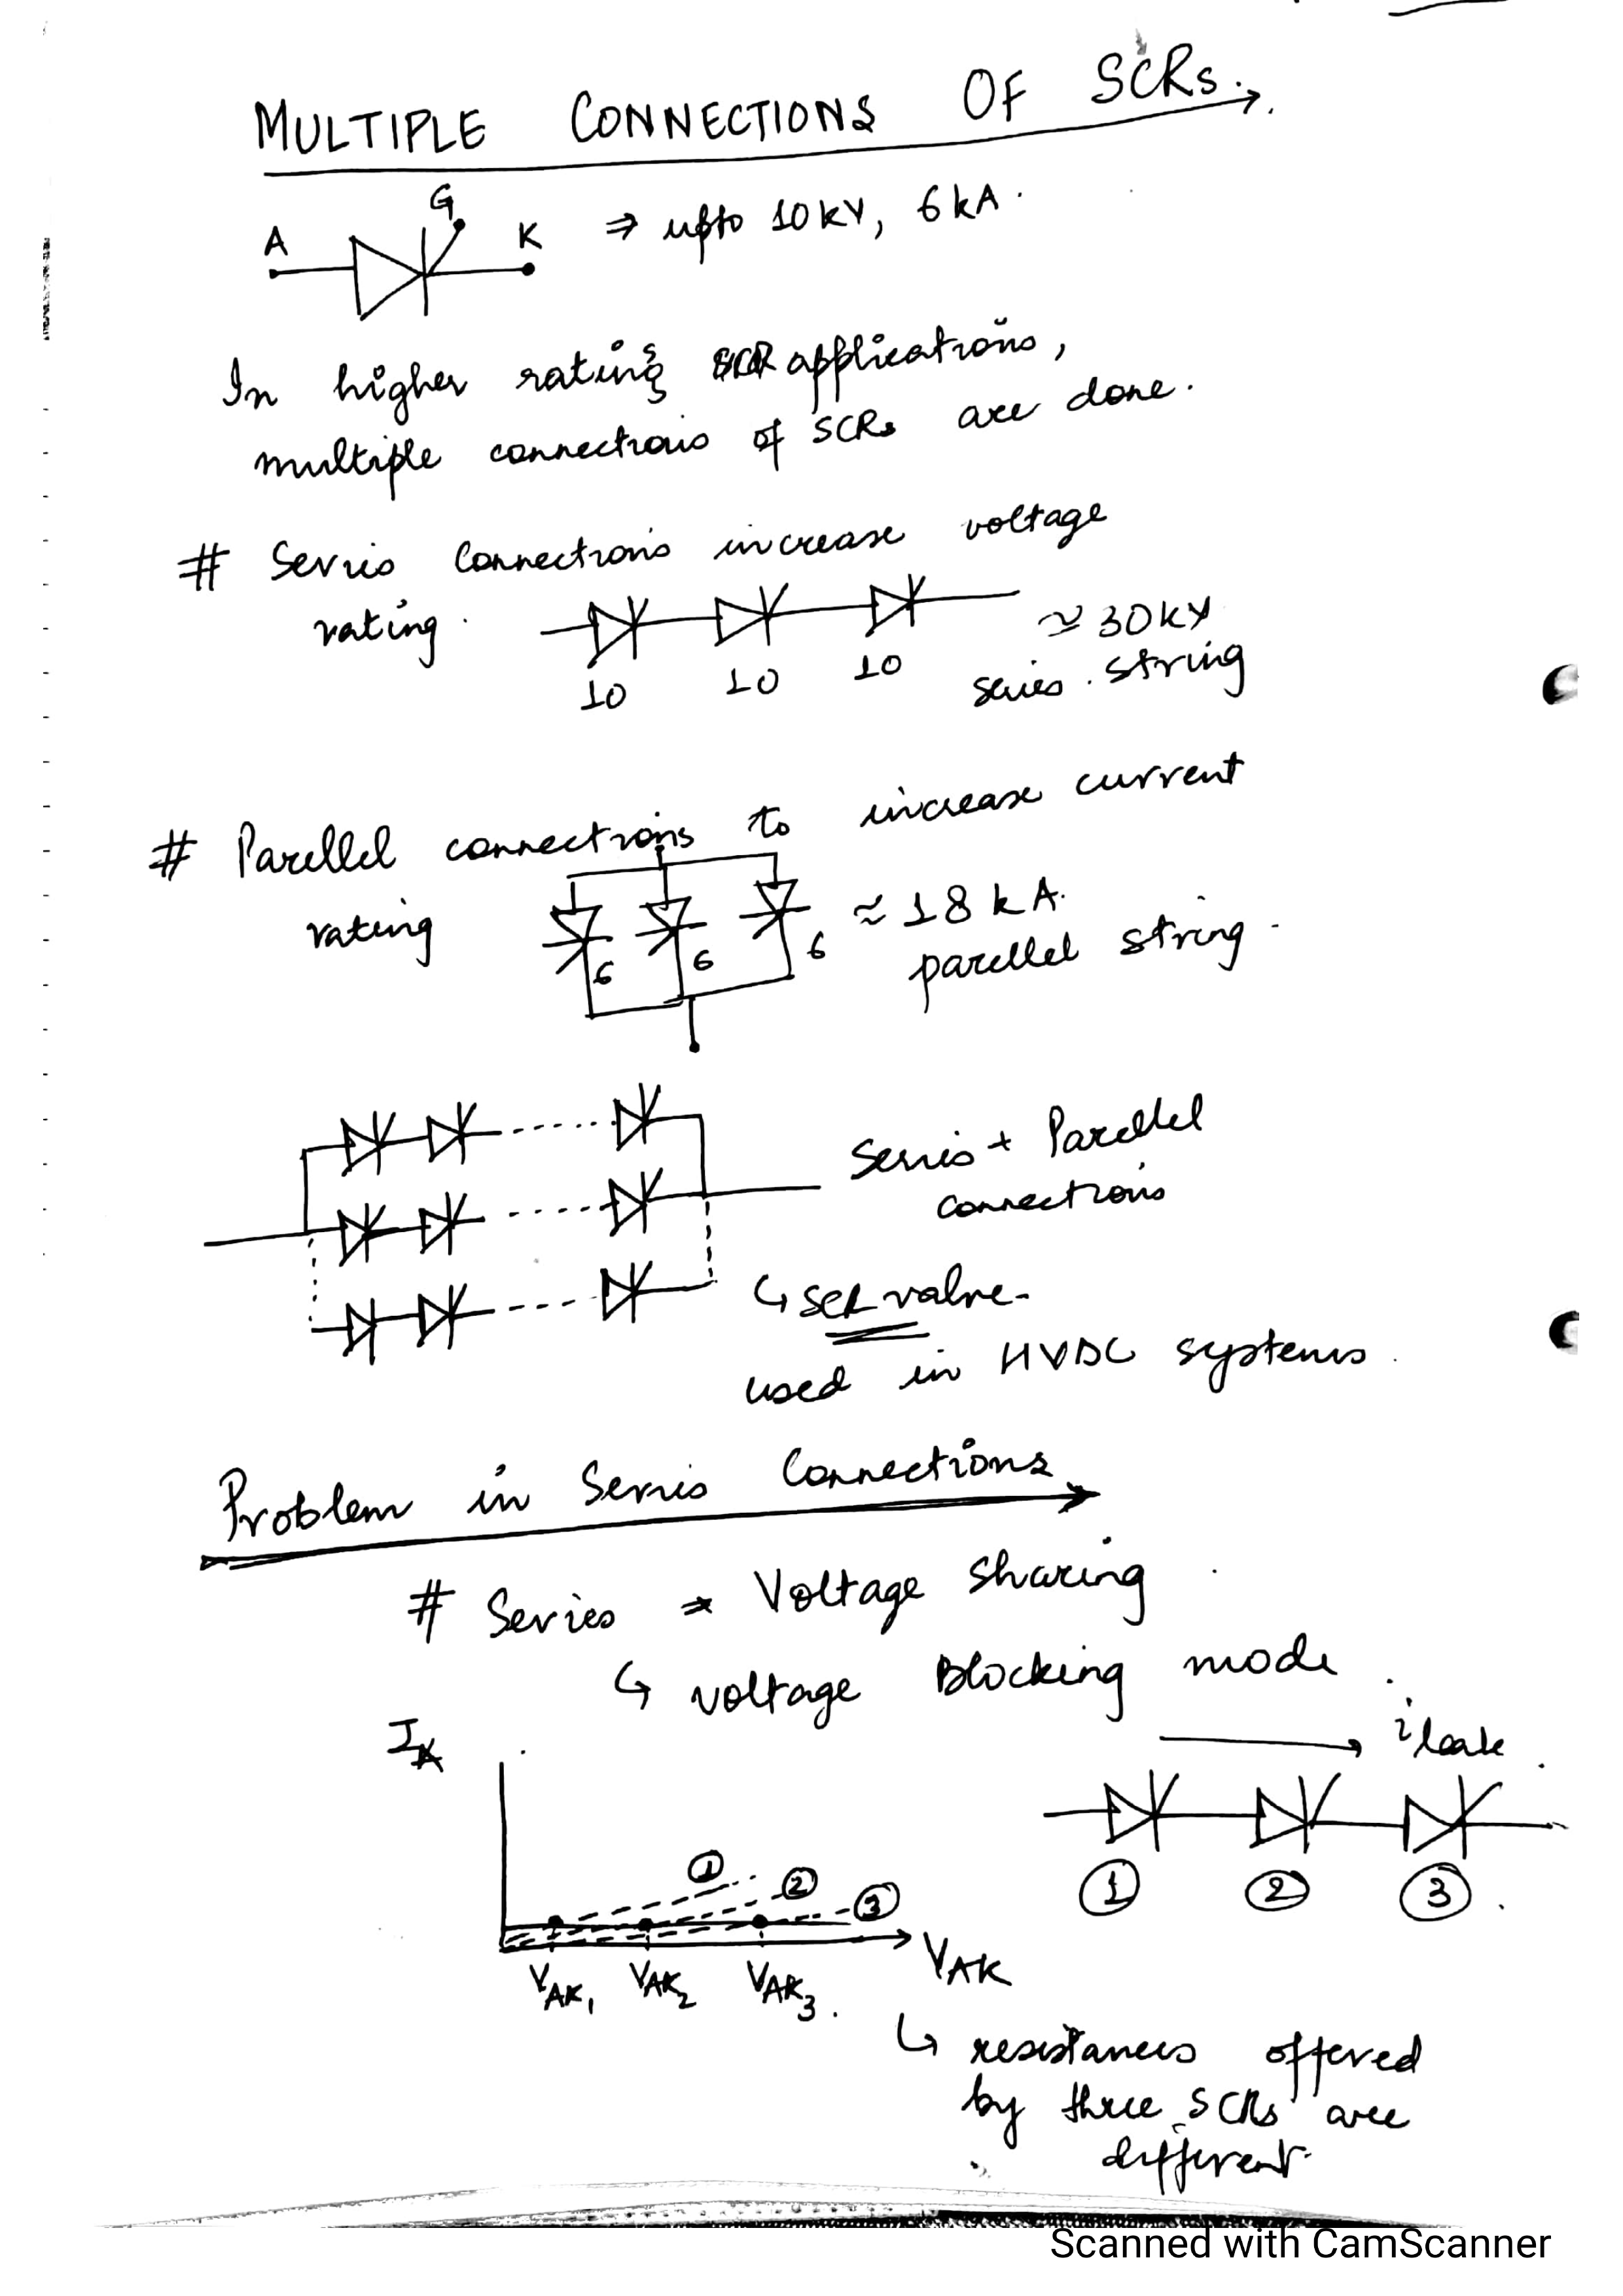 MULTIPLE CONNECTIONS OF SCRs.
G
A
K
⇒ upto 10kV, 6kA.
In higher ratings applications,
multiple connections of SCRs are done.
# Series Connections increase voltage
rating.
≃ 30kV
10 10 10
series string
# Parellel connections to increase current
rating
6 6 6
≈ 18 kA.
parellel string.
Series + Parallel
connections
↳ SCR valve-
used in HVDC systems.
Problem in Series Connections
# Series ⇒ Voltage sharing
↳ voltage Blocking mode.
IA
i leak
① ② ③
① ② ③
VAK1 VAK2 VAK3.
VAK
↳ resistances offered
by three SCRs are
different.
Scanned with CamScanner